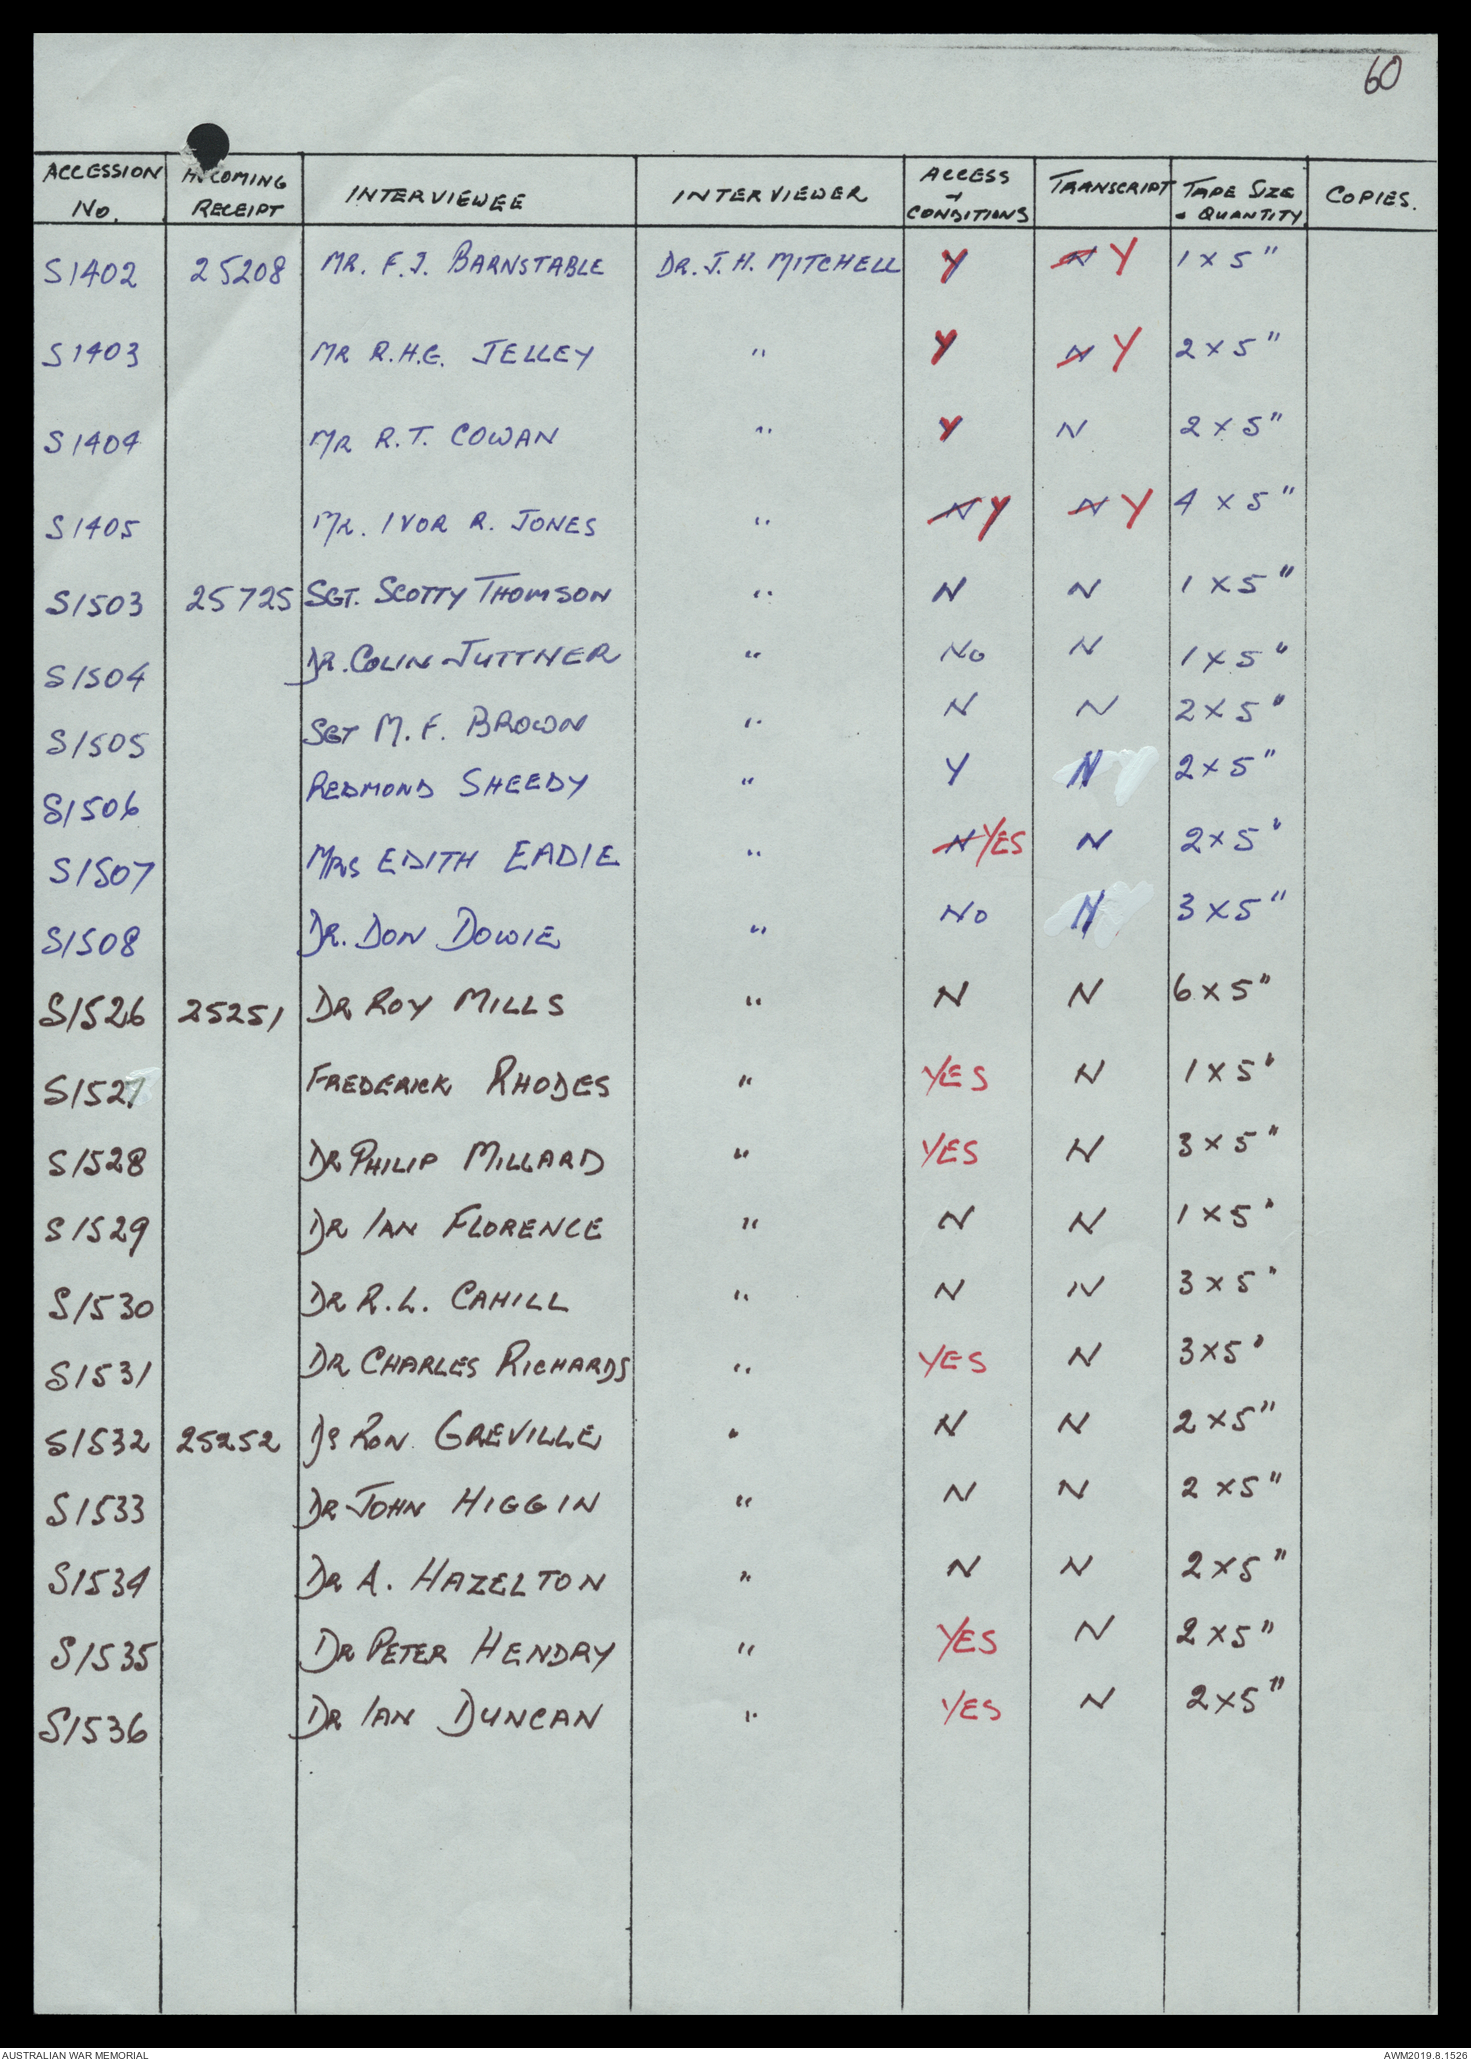 60
ACCESSION No. INCOMING RECEIPT INTERVIEWEE INTERVIEWER ACCESS + CONDITIONS TRANSCRIPT TAPE SIZE + QUANTITY COPIES.
S1402 25208 MR. F.J. BARNSTABLE DR. J.H. MITCHELL Y N Y 1 x 5"
S1403 MR R.H.G. JELLEY " Y N Y 2 x 5"
S1404 MR R.T. COWAN " Y N 2 x 5"
S1405 MR. IVOR R. JONES " N Y N Y 4 x 5"
S1503 25725 SGT. SCOTTY THOMSON " N N 1 x 5"
S1504 DR. COLIN JUTTNER " No N 1 x 5"
S1505 SGT M. F. BROWN " N N 2 x 5"
S1506 REDMOND SHEEDY " Y N 2 x 5"
S1507 MRS EDITH EADIE " N YES N 2 x 5"
S1508 DR. DON DOWIE " No N 3 x 5"
S1526 25251 DR ROY MILLS " N N 6 x 5"
S1527 FREDERICK RHODES " YES N 1 x 5"
S1528 DR PHILIP MILLARD " YES N 3 x 5"
S1529 DR IAN FLORENCE " N N 1 x 5"
S1530 DR R.L. CAHILL " N N 3 x 5"
S1531 DR CHARLES RICHARDS " YES N 3 x 5"
S1532 25252 DR RON GREVILLE " N N 2 x 5"
S1533 DR JOHN HIGGIN " N N 2 x 5"
S1534 DR A. HAZELTON " N N 2 x 5"
S1535 DR PETER HENDRY " YES N 2 x 5"
S1536 DR IAN DUNCAN " YES N 2 x 5"
AUSTRALIAN WAR MEMORIAL AWM2019.8.1526